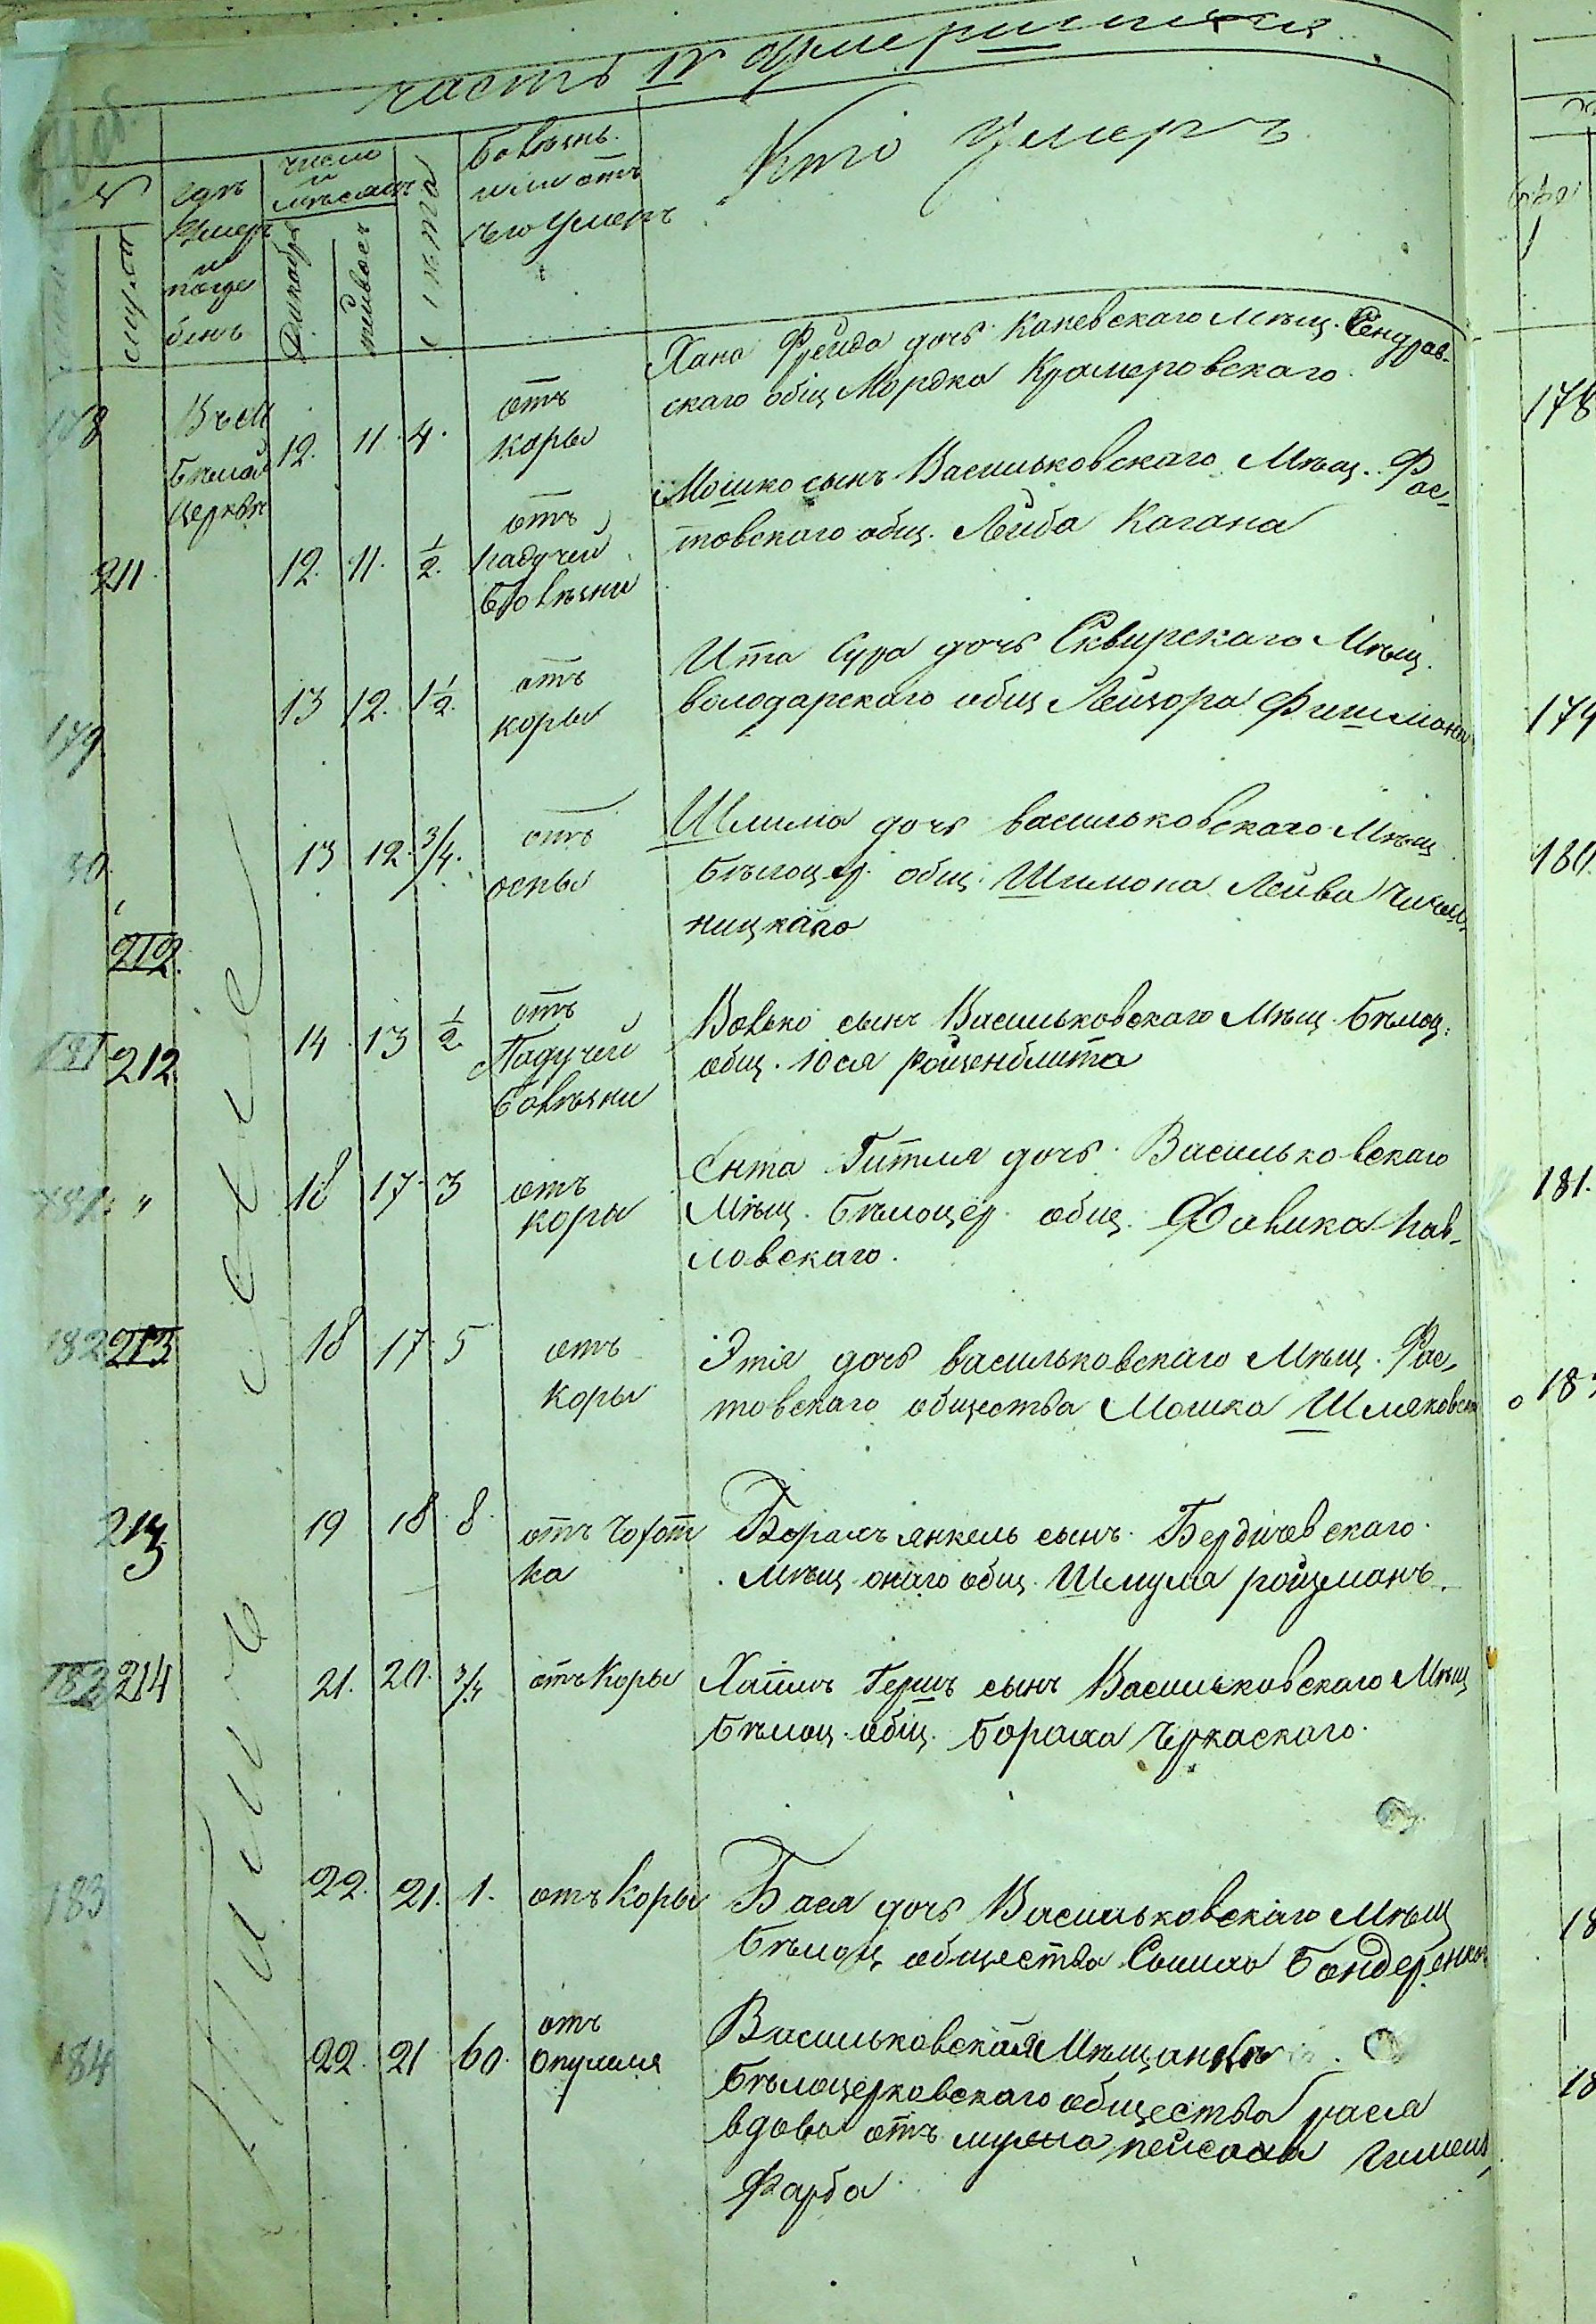 часть IV Умершихъ
№
гдѣ
умеръ
и
погре
бенъ
число
и
мѣсяцъ
Декабрь
тейвосъ
лѣта
болѣзнь
или отъ
чего умеръ
Кто умеръ
178
Въ М
Бѣлая
Церковь
12. 11. 4.
отъ
коры
Хана Фрейда дочь Каневскаго Мѣщ.
скаго общ Мордка Крамаровскаго.
211.
12. 11. ½.
отъ
падучей
болѣзни
Мошко сынъ Васильковскаго Мѣщ. Фас-
товскаго общ. Лейба Кагана
179
13 12. 1½.
отъ
коры
Ита Сура дочь Сквирскаго Мѣщ.
володарскаго общ Лейзора Фишмана
212.
13 12. 3/4.
отъ
оспы
Шлима дочь васильковскаго Мѣщ
бѣлоцер. общ. Шимона Лейва
ницкаго
212
14 13 ½.
отъ
Падучей
болѣзни
Волько сынъ Васильковскаго Мѣщ. Бѣлоц.
общ. Юся Ройзенблита
181. "
18 17. 3
отъ
коры
Ента Гитля дочь Васильковскаго
Мѣщ. Бѣлоцер. общ. Фавика Пав-
ловскаго.
182 213
18 17. 5
отъ
коры
Этя дочь васильковскаго Мѣщ. Фас-
товскаго общества Мошка Шляковска
213
19 18. 8.
отъ чохот
ка
Борахъ янкель сынъ Бердичевскаго
мѣщ онаго общ. Шмуля ройзманъ.
183 214
21. 20. 3/4
отъ Коры
Хаимъ Гершъ сынъ Васильковскаго Мѣщ
бѣлоц. общ. Бораха Черкаскаго.
183
22. 21. 1.
отъ Коры
Бася дочь Васильковскаго Мѣщ
бѣлоц общества Бондаренка
184
22. 21 60.
отъ
опухлия
Васильковская Мѣщанка
Бѣлоцерковскаго общества рася
вдова отъ мужа пейсаха
Фарба
178
179
180.
181.